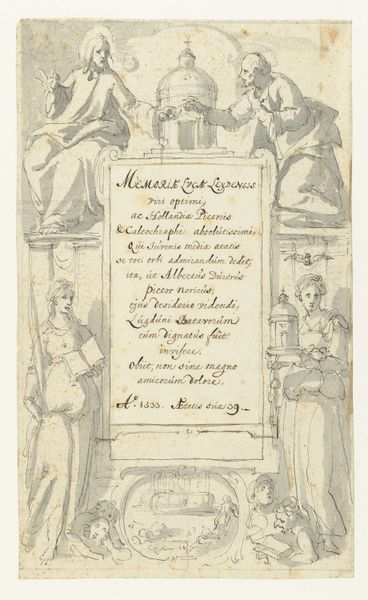 MEMORIÆ LUCÆ LEYDENSIS
viri optimi,
ac Hollandiæ Pictoris
& Calcochraphi absolutissimi,
Qui Juvenis media ætatis
se toti orbi admirandum dedit,
ita, ut Albertus Dürerus
Pictor Noricus,
ejus desiderio videndi,
Lugduni Batavorum
eum dignatus fuit
invisere.
Obiit, non sine magno
amicorum dolore.
Aº. 1533. Ætatis suæ 39.